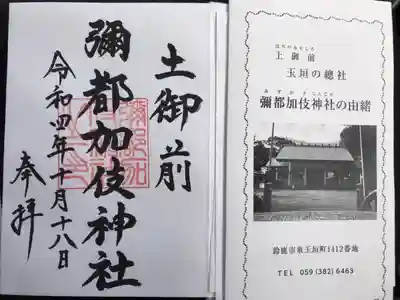 土御前
彌都加伎神社
令和四年十月十八日
奉拝
土御前
玉垣の總社
彌都加伎神社の由緒
鈴鹿市東玉垣町1412番地
TEL 059 (382) 6463